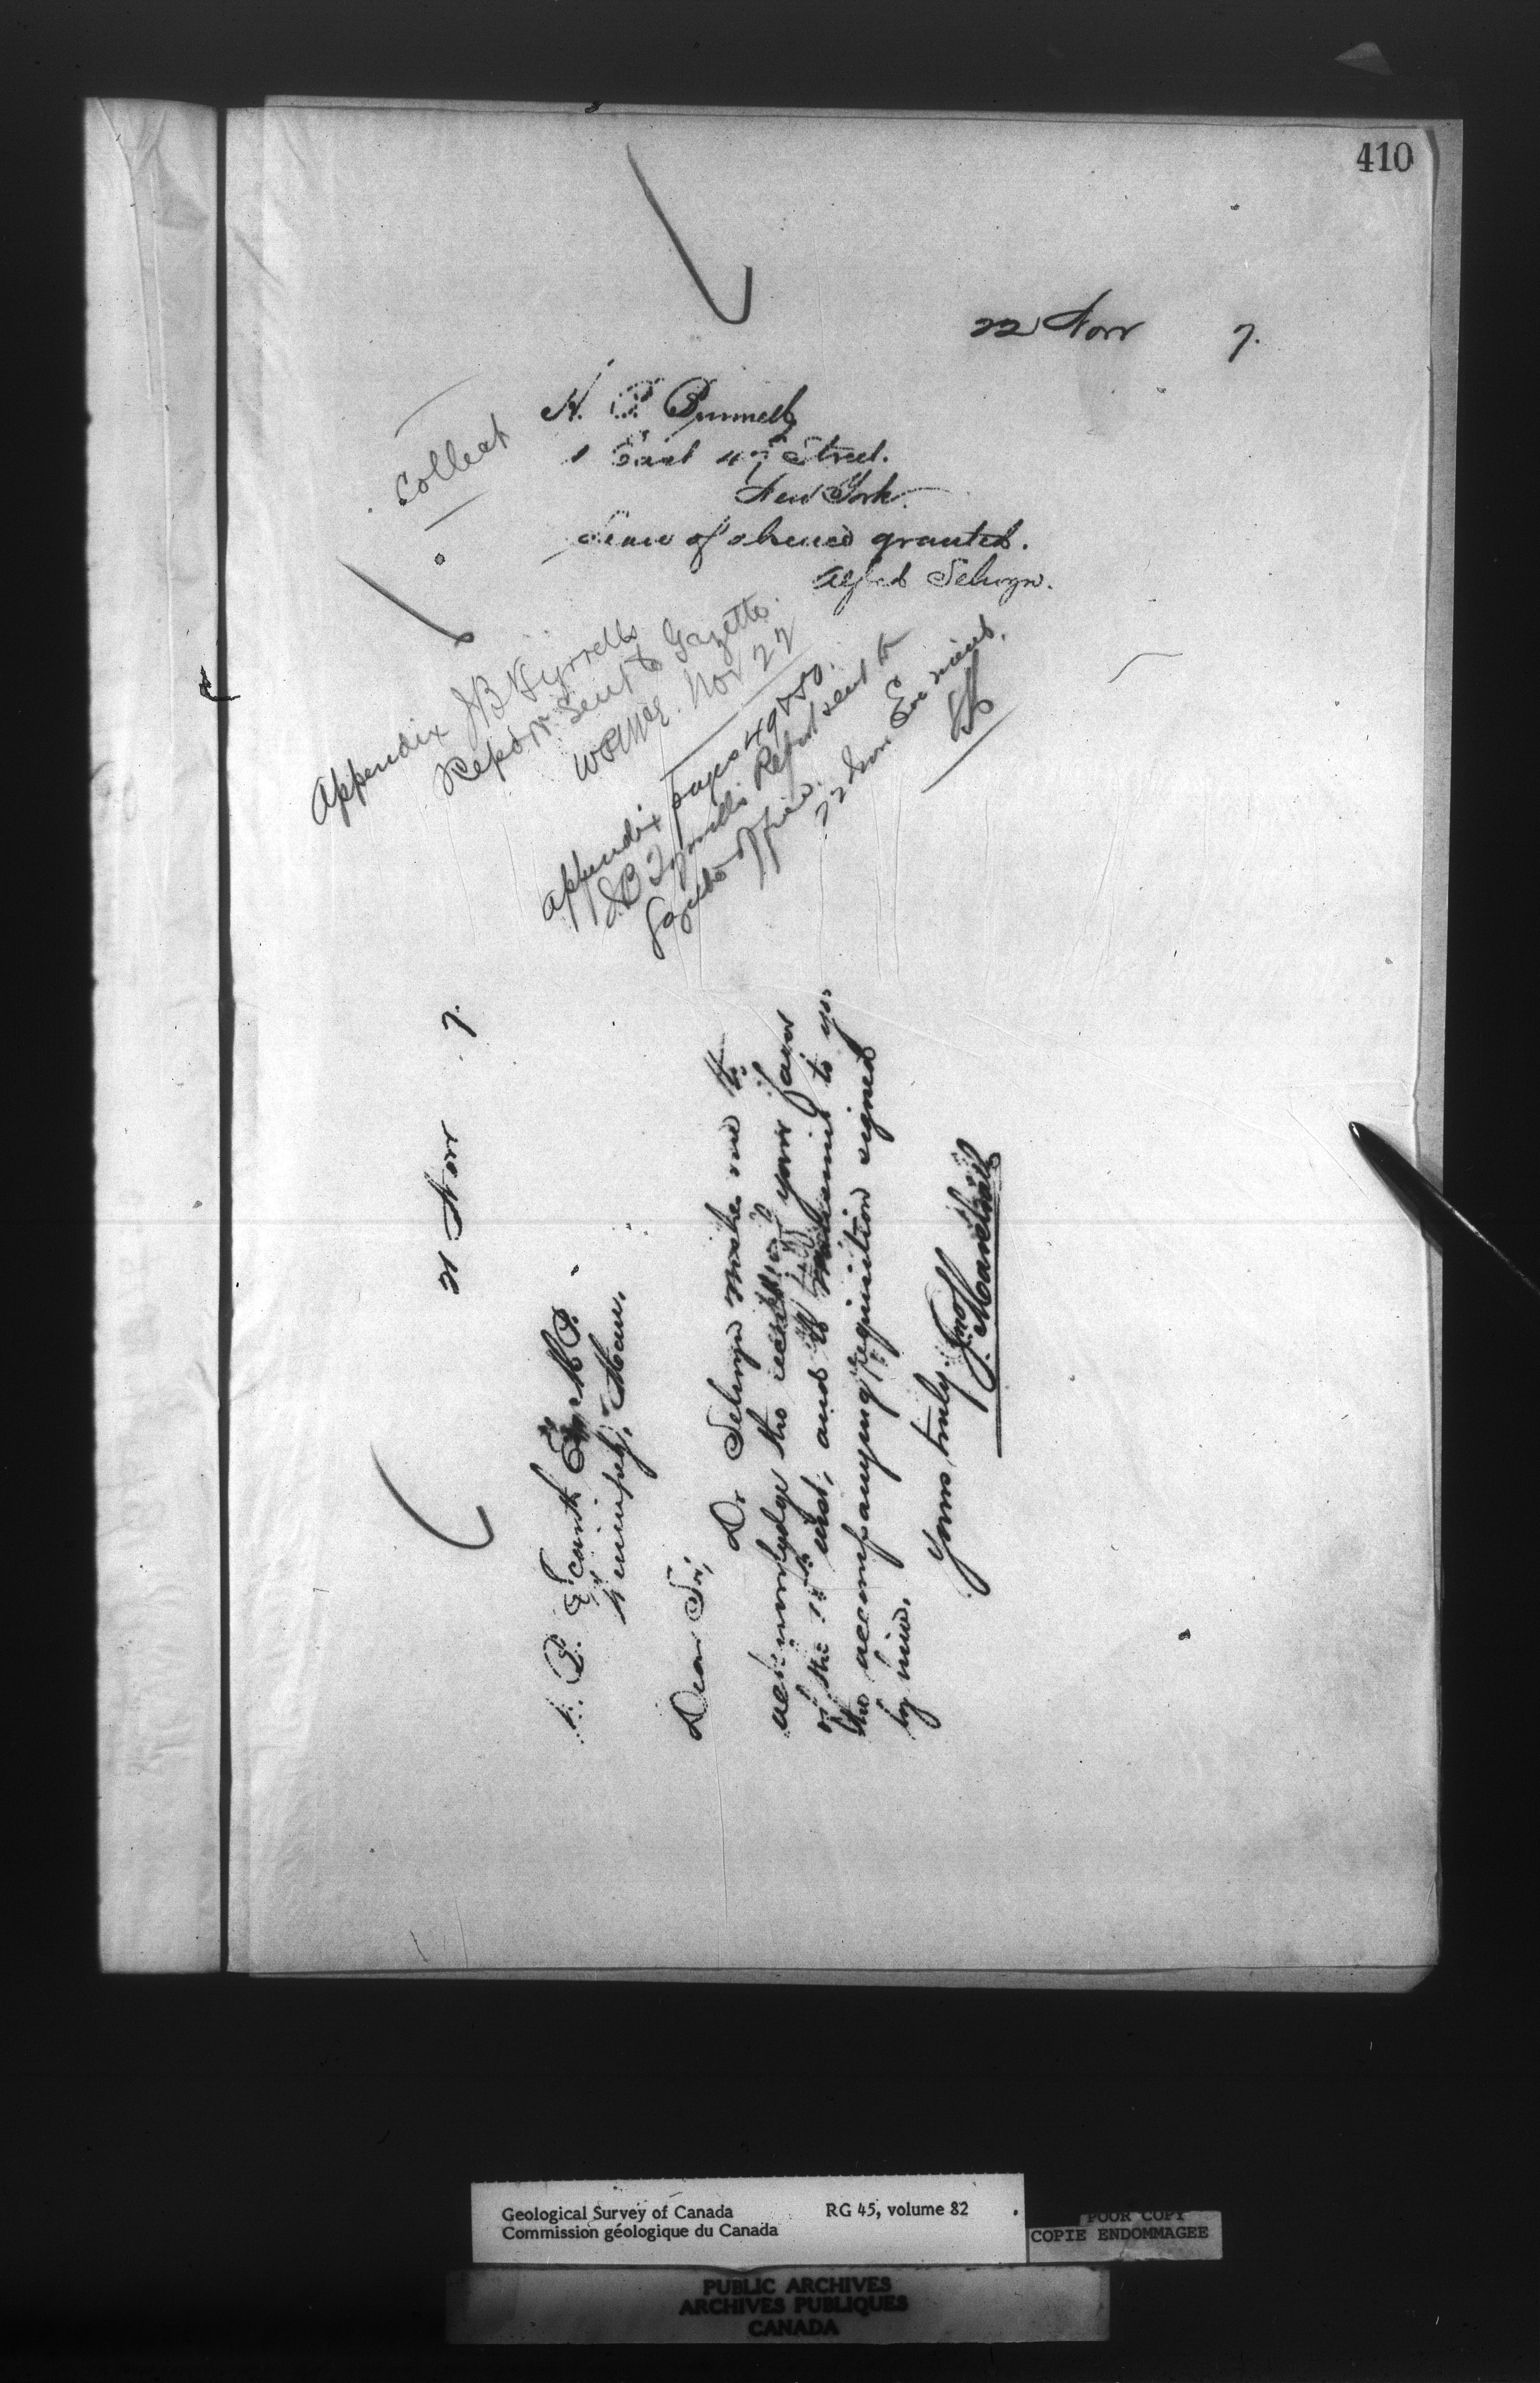 410
22 Novr 7.
Collect
H. P. Brumell
1 East 47 Street.
New York.
Leave of absence granted.
Alfred Selwyn.
Appendix JB Tyrrells
Report Sent to Gazette.
Nov 22
Appendix pages 49 & 50.
JB Tyrrells Report sent to
Gazette Office.
22 Nov
21 Novr 7.
W. B. Scarth Esq M.P.
Winnipeg, Man.
Dear Sir,
Dr Selwyn wishes me to
acknowledge the receipt of your favor
of the 15th inst, and to transmit to you
the accompanying requisition signed
by him.
Yours truly
Jno. Marshall
Geological Survey of Canada RG 45, volume 82
Commission géologique du Canada
POOR COPY
COPIE ENDOMMAGEE
PUBLIC ARCHIVES
ARCHIVES PUBLIQUES
CANADA